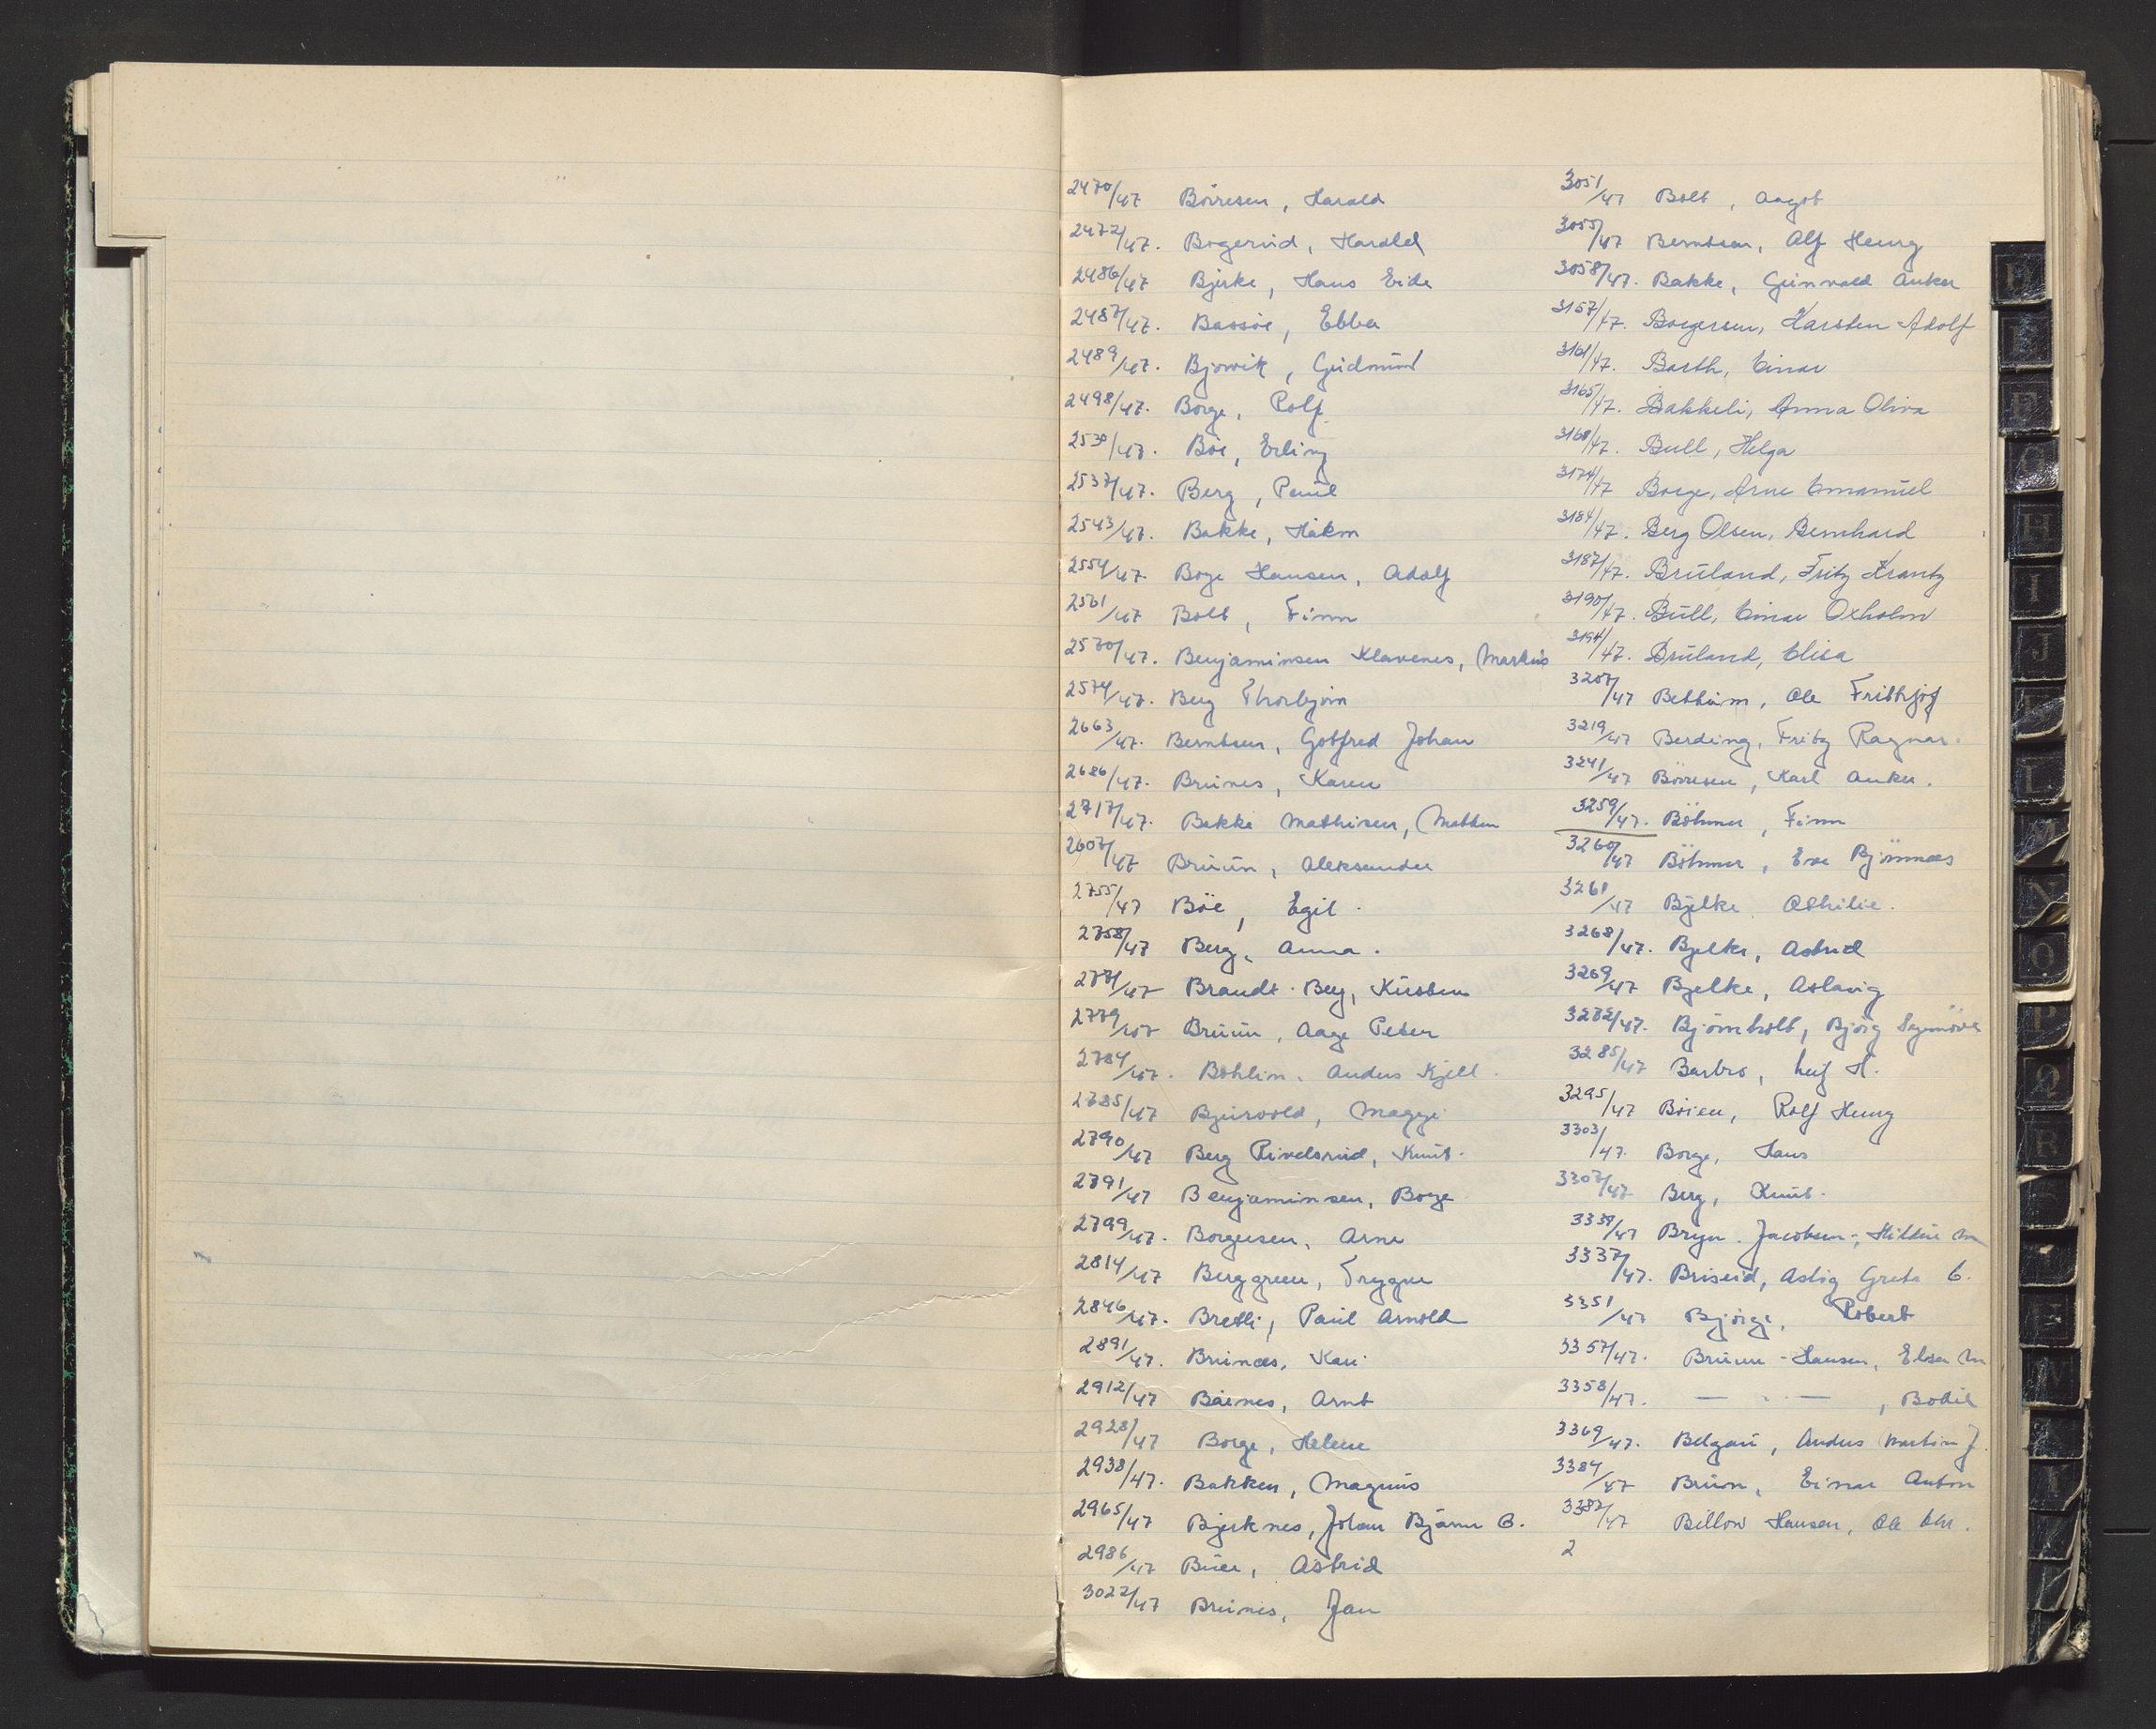 2470/47 Börresen, Harald
2472/47. Bogerud, Harald
2486/47 Bjerke, Hans Eide
2487/47. Bassöe, Ebba
2489/47. Bjorvik, Gudmund
2498/47. Borge, Rolf
2530/47. Böe, Erling
2537/47. Berg, Paul
2543/47. Bakke, Håkon
2554/47 Boge Hansen, Adolf
2561/47 Bolt, Finn
2570/47. Benjaminsen Klavenes, Markus
2574/47. Berg Thorbjörn
2663/47. Berntsen, Gotfred Johan
2686/47. Brunes, Karen
2717/47. Bakke Mathisen,
2607/47 Bruun, Aleksander
2755/47 Böe, Egil.
2758/47 Berg, Anna.
/47 Brandt-Berg, Kirsten
2779/47 Bruun, Aage Peter
2784/47. Bohlin, Anders Kjell.
2785/47 Bjurvold, Maggi
2790/47 Berg Rivelsrud, Knut.
2791/47 Benjaminsen, Borge
2799/47. Borgersen, Arne
2814/47 Berggreen, Trygve
2846/47. Bretli, Paul Arnold
2891/47. Brunæs, Kari
2912/47 Arnt
2928/47 Borge, Helene
2938/47. Bakken, Magnus
2965/47 Bjerknes, Johan Bjarne B.
2986/47 Astrid
3022/47 Brunes, Jan
3051/47 Bolt, Aagot
3055/47 Berntsen, Alf Henry
3058/47. Bakke, Gunvald Anker
3157/47. Borgersen, Karsten Adolf
3161/47. Barth, Einar
3165/47. Bakkeli, Anna Oliva
3168/47. Bull, Helga
3174/47 Borge, Arne Emanuel
3184/47. Berg Olsen, Bernhard
3187/47. Bruland, Fritz Krantz
3190/47. Bull, Einar Oxholm
3194/47. Bruland, Elisa
3207/47 Bettum, Ole Frithjof
3219/47 Berding, Fritz Ragnar.
3241/47 Börresen, Karl Anker.
3259/47. Böhmer, Finn
3260/47 Böhmer, Eva Björnnæs
3261/47 Bjelke, Othilie.
3268/47. Bjelke, Astrid
3269/47 Bjelke, Aslaug
3272/47. Björnholt, Björg Synnöve
3285/47 Barbro, Leif H.
3295/47 Böien, Rolf Henry
3303/47. Borge, Hans
3307/47 Berg, Knut.
/47 Bryn Jacobsen,
3337/47. Briseid, Greta E.
3351/47 Björge, Robert
3357/47. Bruun-Hansen, Elsa M
3358/47. — " —, Bodil
3369/47. Belgau, Anders Martin J.
3384/47 Bruun, Einar Anton
3387/47 Billow Hansen, Ole Chr.
2
H
I
J
L
N
O
P
Q
R